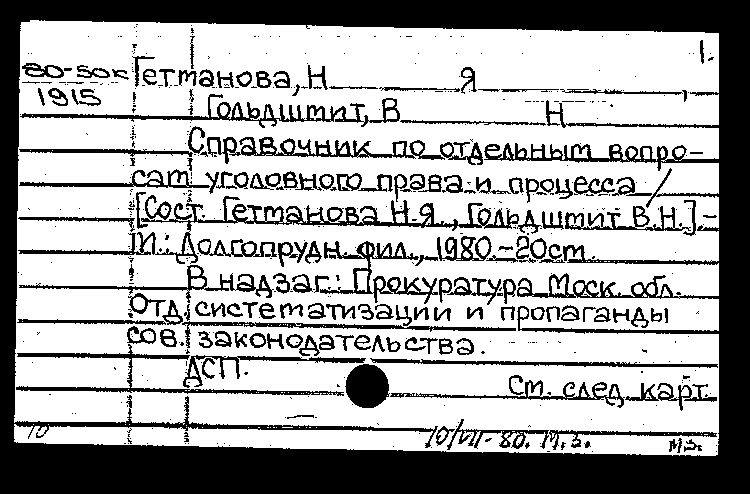 1.
80-50к Гетманова, Н Я
1915
Гольдштит, В Н
Справочник по отдельным вопро-
сам уголовного права и процесса /
[Сост. Гетманова Н.Я., Гольдштит В.Н.].-
М.: Долгопрудн. фил., 1980.-20ст.
В надзаг.: Прокуратура Моск. обл.
Отд. систематизации и пропаганды
сов. законодательства.
ДСП.
Ст. след. карт.
10 10/VII-80. М.З. М.З.